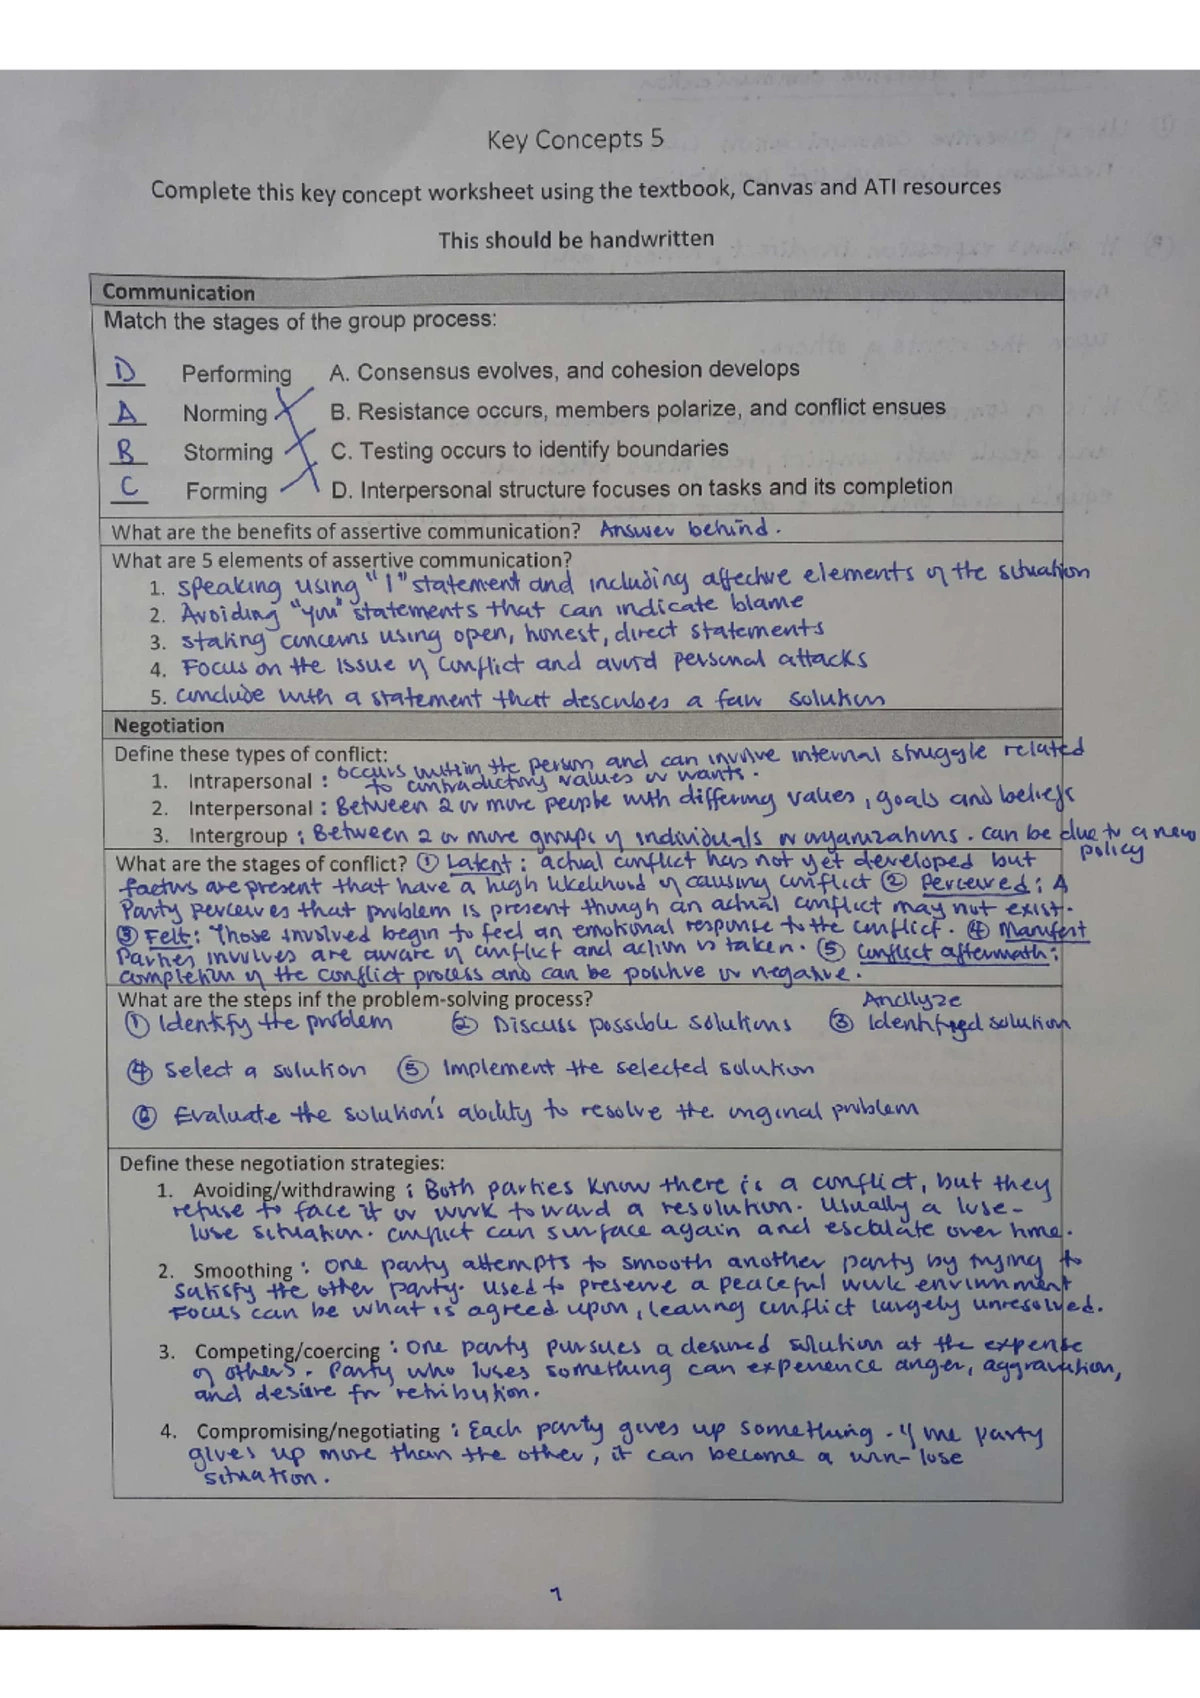 Key Concepts 5
Complete this key concept worksheet using the textbook, Canvas and ATI resources
This should be handwritten
Communication
Match the stages of the group process:
D Performing A. Consensus evolves, and cohesion develops
A Norming B. Resistance occurs, members polarize, and conflict ensues
B Storming C. Testing occurs to identify boundaries
C Forming D. Interpersonal structure focuses on tasks and its completion
What are the benefits of assertive communication? Answer behind.
What are 5 elements of assertive communication?
1. Speaking using "I" statement and including affective elements of the situation
2. Avoiding "you" statements that can indicate blame
3. stating concerns using open, honest, direct statements
4. Focus on the issue of conflict and avoid personal attacks
5. conclude with a statement that describes a fair solution
Negotiation
Define these types of conflict:
1. Intrapersonal : occurs within the person and can involve internal struggle related
to contradictory values or wants.
2. Interpersonal : Between 2 or more people with differing values, goals and beliefs
3. Intergroup : Between 2 or more groups of individuals or organizations. can be due to a new
policy
What are the stages of conflict? ① Latent : actual conflict has not yet developed but
factors are present that have a high likelihood of causing conflict ② Perceived : A
Party perceives that problem is present though an actual conflict may not exist.
③ Felt : Those involved begin to feel an emotional response to the conflict. ④ Manifest
Parties involves are aware of conflict and action is taken. ⑤ Conflict aftermath :
completion of the conflict process and can be positive or negative.
What are the steps inf the problem-solving process? Analyze
① Identify the problem ② Discuss possible solutions ③ Identifyed solution
④ Select a solution ⑤ Implement the selected solution
⑥ Evaluate the solution's ability to resolve the original problem
Define these negotiation strategies:
1. Avoiding/withdrawing : Both parties know there is a conflict, but they
refuse to face it or work toward a resolution. Usually a lose-
lose situation. conflict can surface again and escalate over time.
2. Smoothing : one party attempts to smooth another party by trying to
satisfy the other party. used to preserve a peaceful work environment
Focus can be what is agreed upon, leaving conflict largely unresolved.
3. Competing/coercing : one party pursues a desired solution at the expense
of others. Party who loses something can experience anger, aggravation,
and desire for retribution.
4. Compromising/negotiating : Each party gives up something. If one party
gives up more than the other, it can become a win-lose
situation.
1